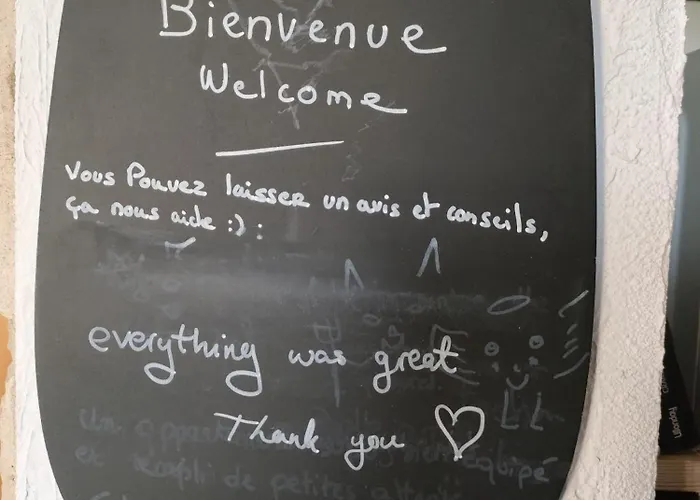 Bienvenue
Welcome
Vous Pouvez laisser un avis et conseils,
ça nous aide :) :
everything was great
Thank you ♡
Un équipé
et rempli de petites